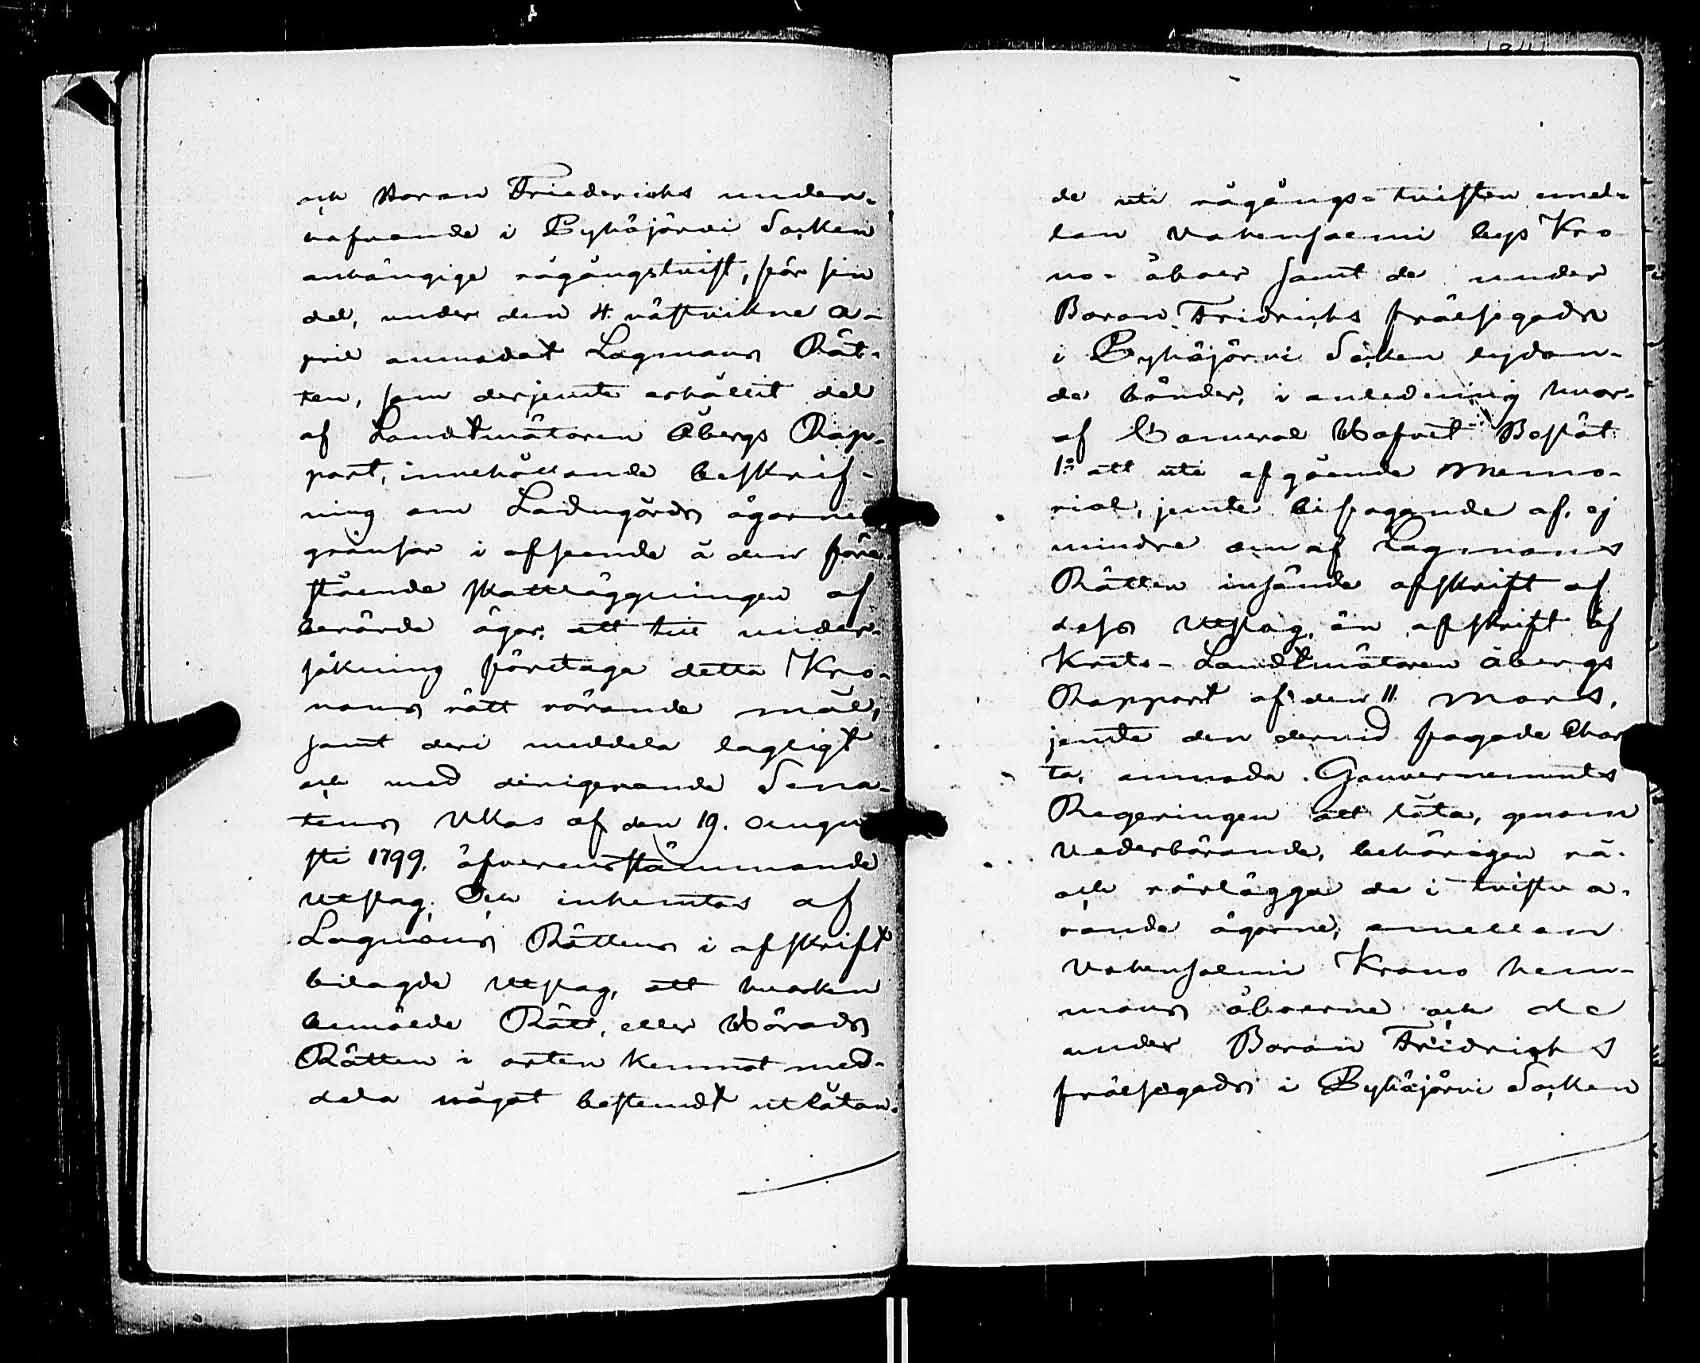 och Baron Friederichs under-
hafvande i Pyhäjärvi Socken
anhängige rågångstvist, för sin
del, under den 4. nästvikne A-
pril anmodat Lagmans Rät-
ten, som derjemte erhållit del
af Landtmätaren Åbergs Rap-
port, innehållande beskrif-
ning om Ladugårds ägornes
gränsor i afseende å den före-
stående skattläggningen af
berörde ägor, att till under-
sökning företaga detta Kro-
nans rätt rörande mål,
samt deri meddela lagligt
och med dirigerande Sena-
tens Ukas af den 19. Augu-
sti 1799. öfverensstämmande
utslag; Och inhemtas af
Lagmans Rättens i afskrift
bilagde utslag, att hvarken
bemälde Rätt, eller Härads
Rätten i orten kunnat med-
dela något bestemdt utlåtan-
de uti rågångs-tvisten emel-
lan Vakensalmi bys Kro-
no-åboer samt de under
Baron Fridrichs frälsegods
i Pyhäjärvi Socken lydan-
de bönder, i anledning hvar-
af Cameral Hofvet Beslöt:
1:o att uti afgående Memo-
rial, jemte bifogande af, ej
mindre den af Lagmans
Rätten insände afskrift af
dess utslag, än afskrift af
Krets-Landtmätaren Åbergs
Rapport af den 11 Mars,
jemte den dervid fogade Char-
ta, anmoda Gouvernements
Regeringen att låta, genom
vederbörande, behörigen rå-
och rörlägga de i tvist va-
rande ägorne, emellan
Vakensalmi Krono hem-
mans åboerne och de
under Baron Fridrichs
frälsegods i Pyhäjärvi Socken